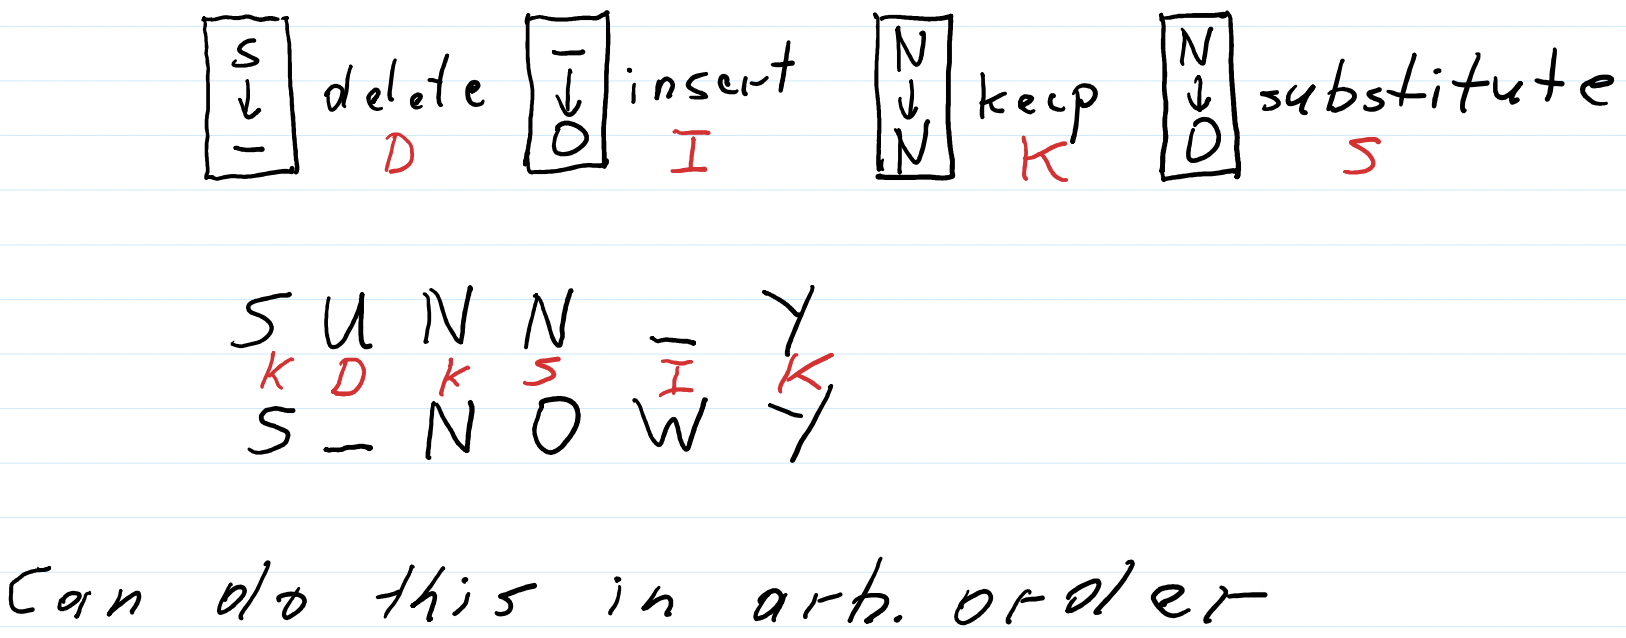 S ↓ – delete – ↓ O insert N ↓ N keep N ↓ O substitute
D I K S
S U N N _ Y
K D K S I K
S _ N O W Y
Can do this in arb. order